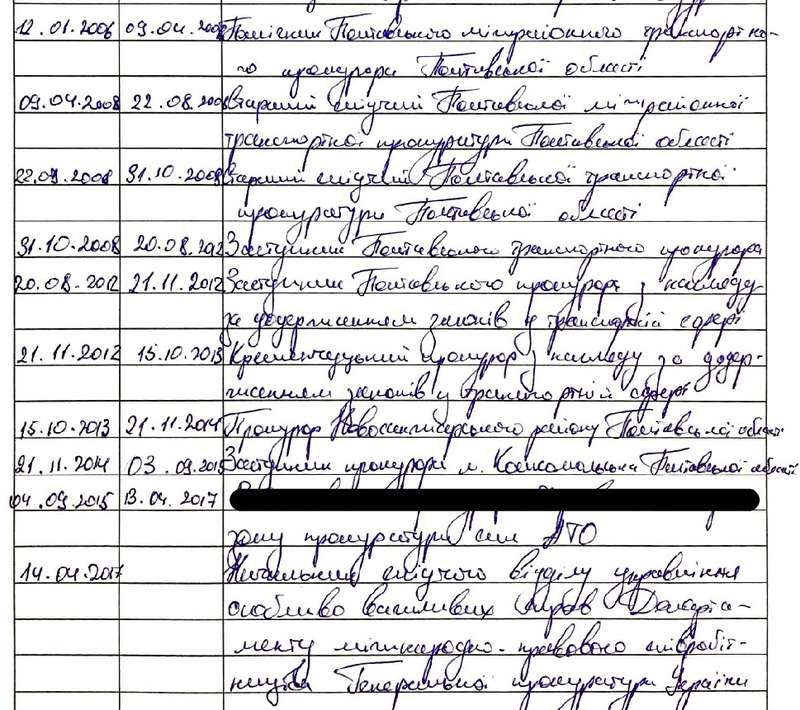 12.01.2006 09.04.2008 Помічник Полтавського міжрайонного транспортно-
го прокурора Полтавської області
09.04.2008 22.08.2008 Старший слідчий Полтавської міжрайонної
транспортної прокуратури Полтавської області
22.09.2008 31.10.2008 Старший слідчий Полтавської транспортної
прокуратури Полтавської області
31.10.2008 20.08.2012 Заступник Полтавського транспортного прокурора
20.08.2012 21.11.2012 Заступник Полтавського прокурора з нагляду
за додержанням законів у транспортній сфері
21.11.2012 15.10.2013 Кременчуцький прокурор з нагляду за додер-
жанням законів у транспортній сфері
15.10.2013 21.11.2014 Прокурор Новосанжарського району Полтавської області
21.11.2014 03.09.2015 Заступник прокурора м. Комсомольська Полтавської області
04.09.2015 13.04.2017
прокуратури сил АТО
14.04.2017 Начальник слідчого відділу управління
особливо важливих справ Департа-
менту міжнародно-правового співробіт-
ництва Генеральної прокуратури України